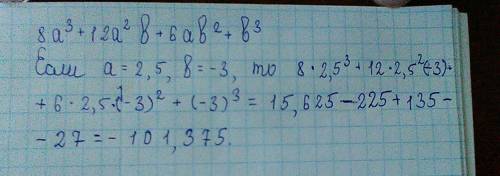 8a³+12a²b+6ab²+b³
Если a=2,5, b=-3, то 8·2,5³+12·2,5²(-3)+
+6·2,5·(-3)²+(-3)³=15,625-225+135-
-27=-101,375.